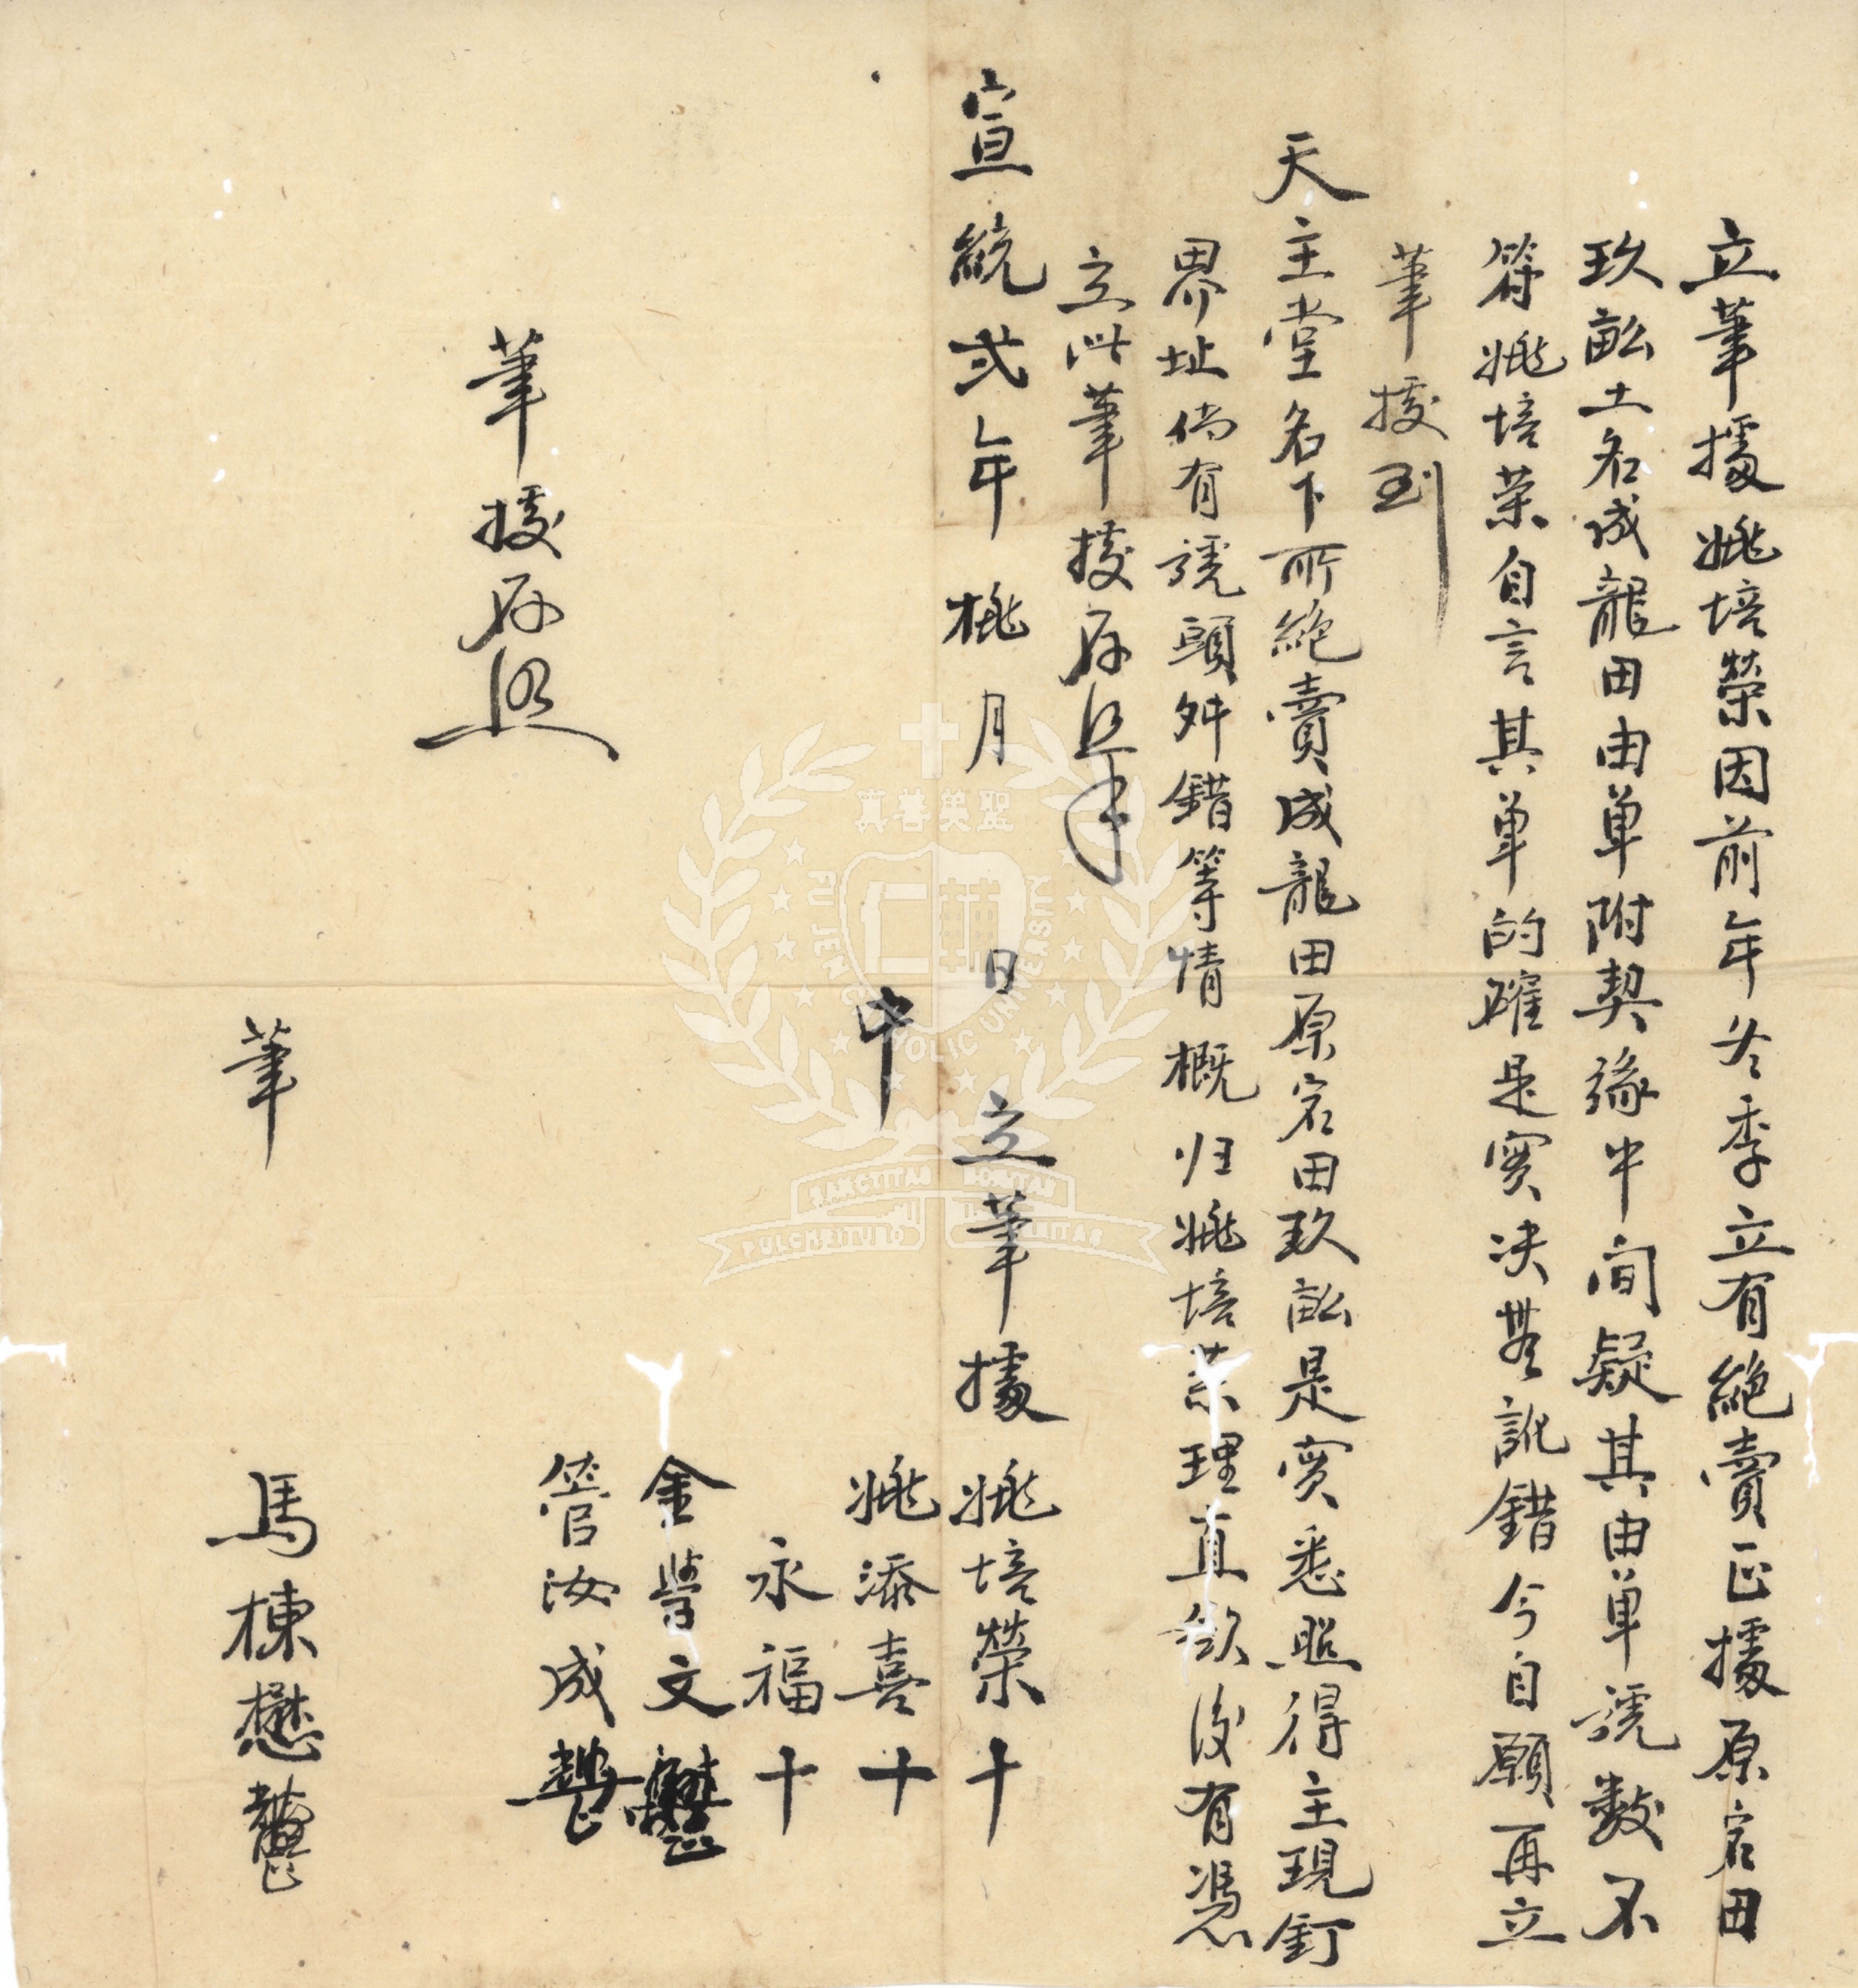 立筆據姚培榮因前年冬季立有絕賣正據原宕田
玖畝土名成龍田由单附契緣中间疑其由单號數不
符姚培荣自言其单的確是实决無訛錯今自願再立
筆據到
天主堂名下所絕賣成龍田原宕田玖畝是实悉照得主現釘
界址倘有號頭舛錯等情概归姚培荣理直欲後有憑
立此筆據存照
宣統弍年桃月 日立筆據姚培榮十
中 姚添喜十
永福十
金 文
管汝成
筆據存照
筆 馬棟懋
真善美聖
FU JEN CATHOLIC UNIVERSITY
SANCTITAS BONITAS
PULCHRITUDO VERITAS